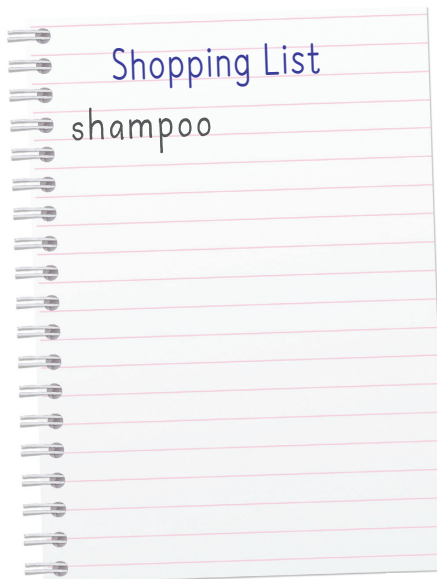 Shopping List
shampoo